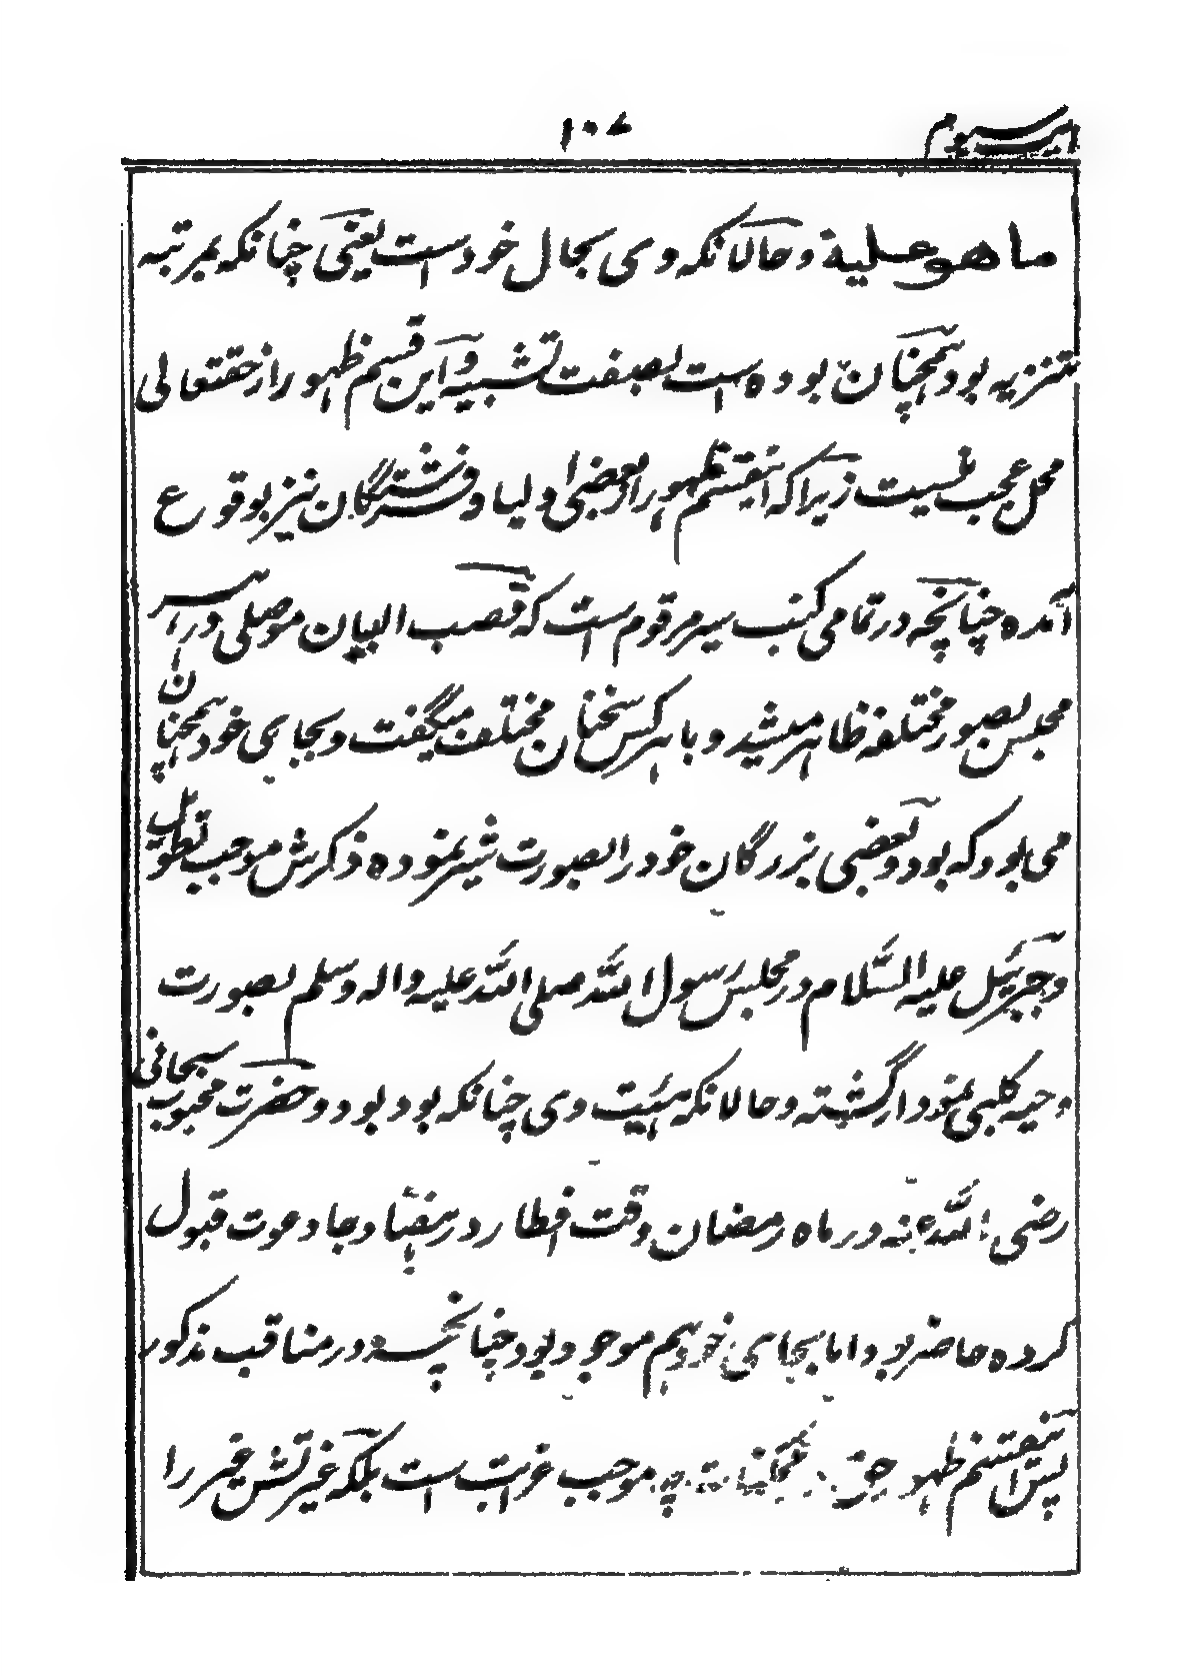 امر سیوم
۱۰۷
ما هو علیه و حالانکه وی بحال خود است یعنی چنانکه بمرتبه
تنزیه بود همچنان بوده است بصفت تشبیه و این قسم ظهور از حقتعالی
محل عجب نیست زیرا که اینقسم ظهور از بعضی اولیا و فرشتگان نیز بوقوع
آمده چنانچه در تمامی کتب سیر مرقوم است که قصب البیان موصلی در هر
مجلس بصور مختلفه ظاهر میشد و با هر کس سخنان مختلف میگفت و بجای خود همچنان
می بود که بود و بعضی بزرگان خود را بصورت شیر نموده ذکرش موجب تطویل
و جبرئیل علیه السلام در مجلس رسول الله صلی الله علیه واله وسلم بصورت
دحیه کلبی نمودار گشته و حالانکه هیئت وی چنانکه بود بود و حضرت محبوب سبحانی
رضی الله عنه در ماه رمضان وقت افطار در هفتاد جا دعوت قبول
کرده حاضر بود اما بجای خود هم موجود بود چنانچه در مناقب مذکور
پس اینقسم ظهور حق موجب غرابت است بلکه غیرتش غیر را